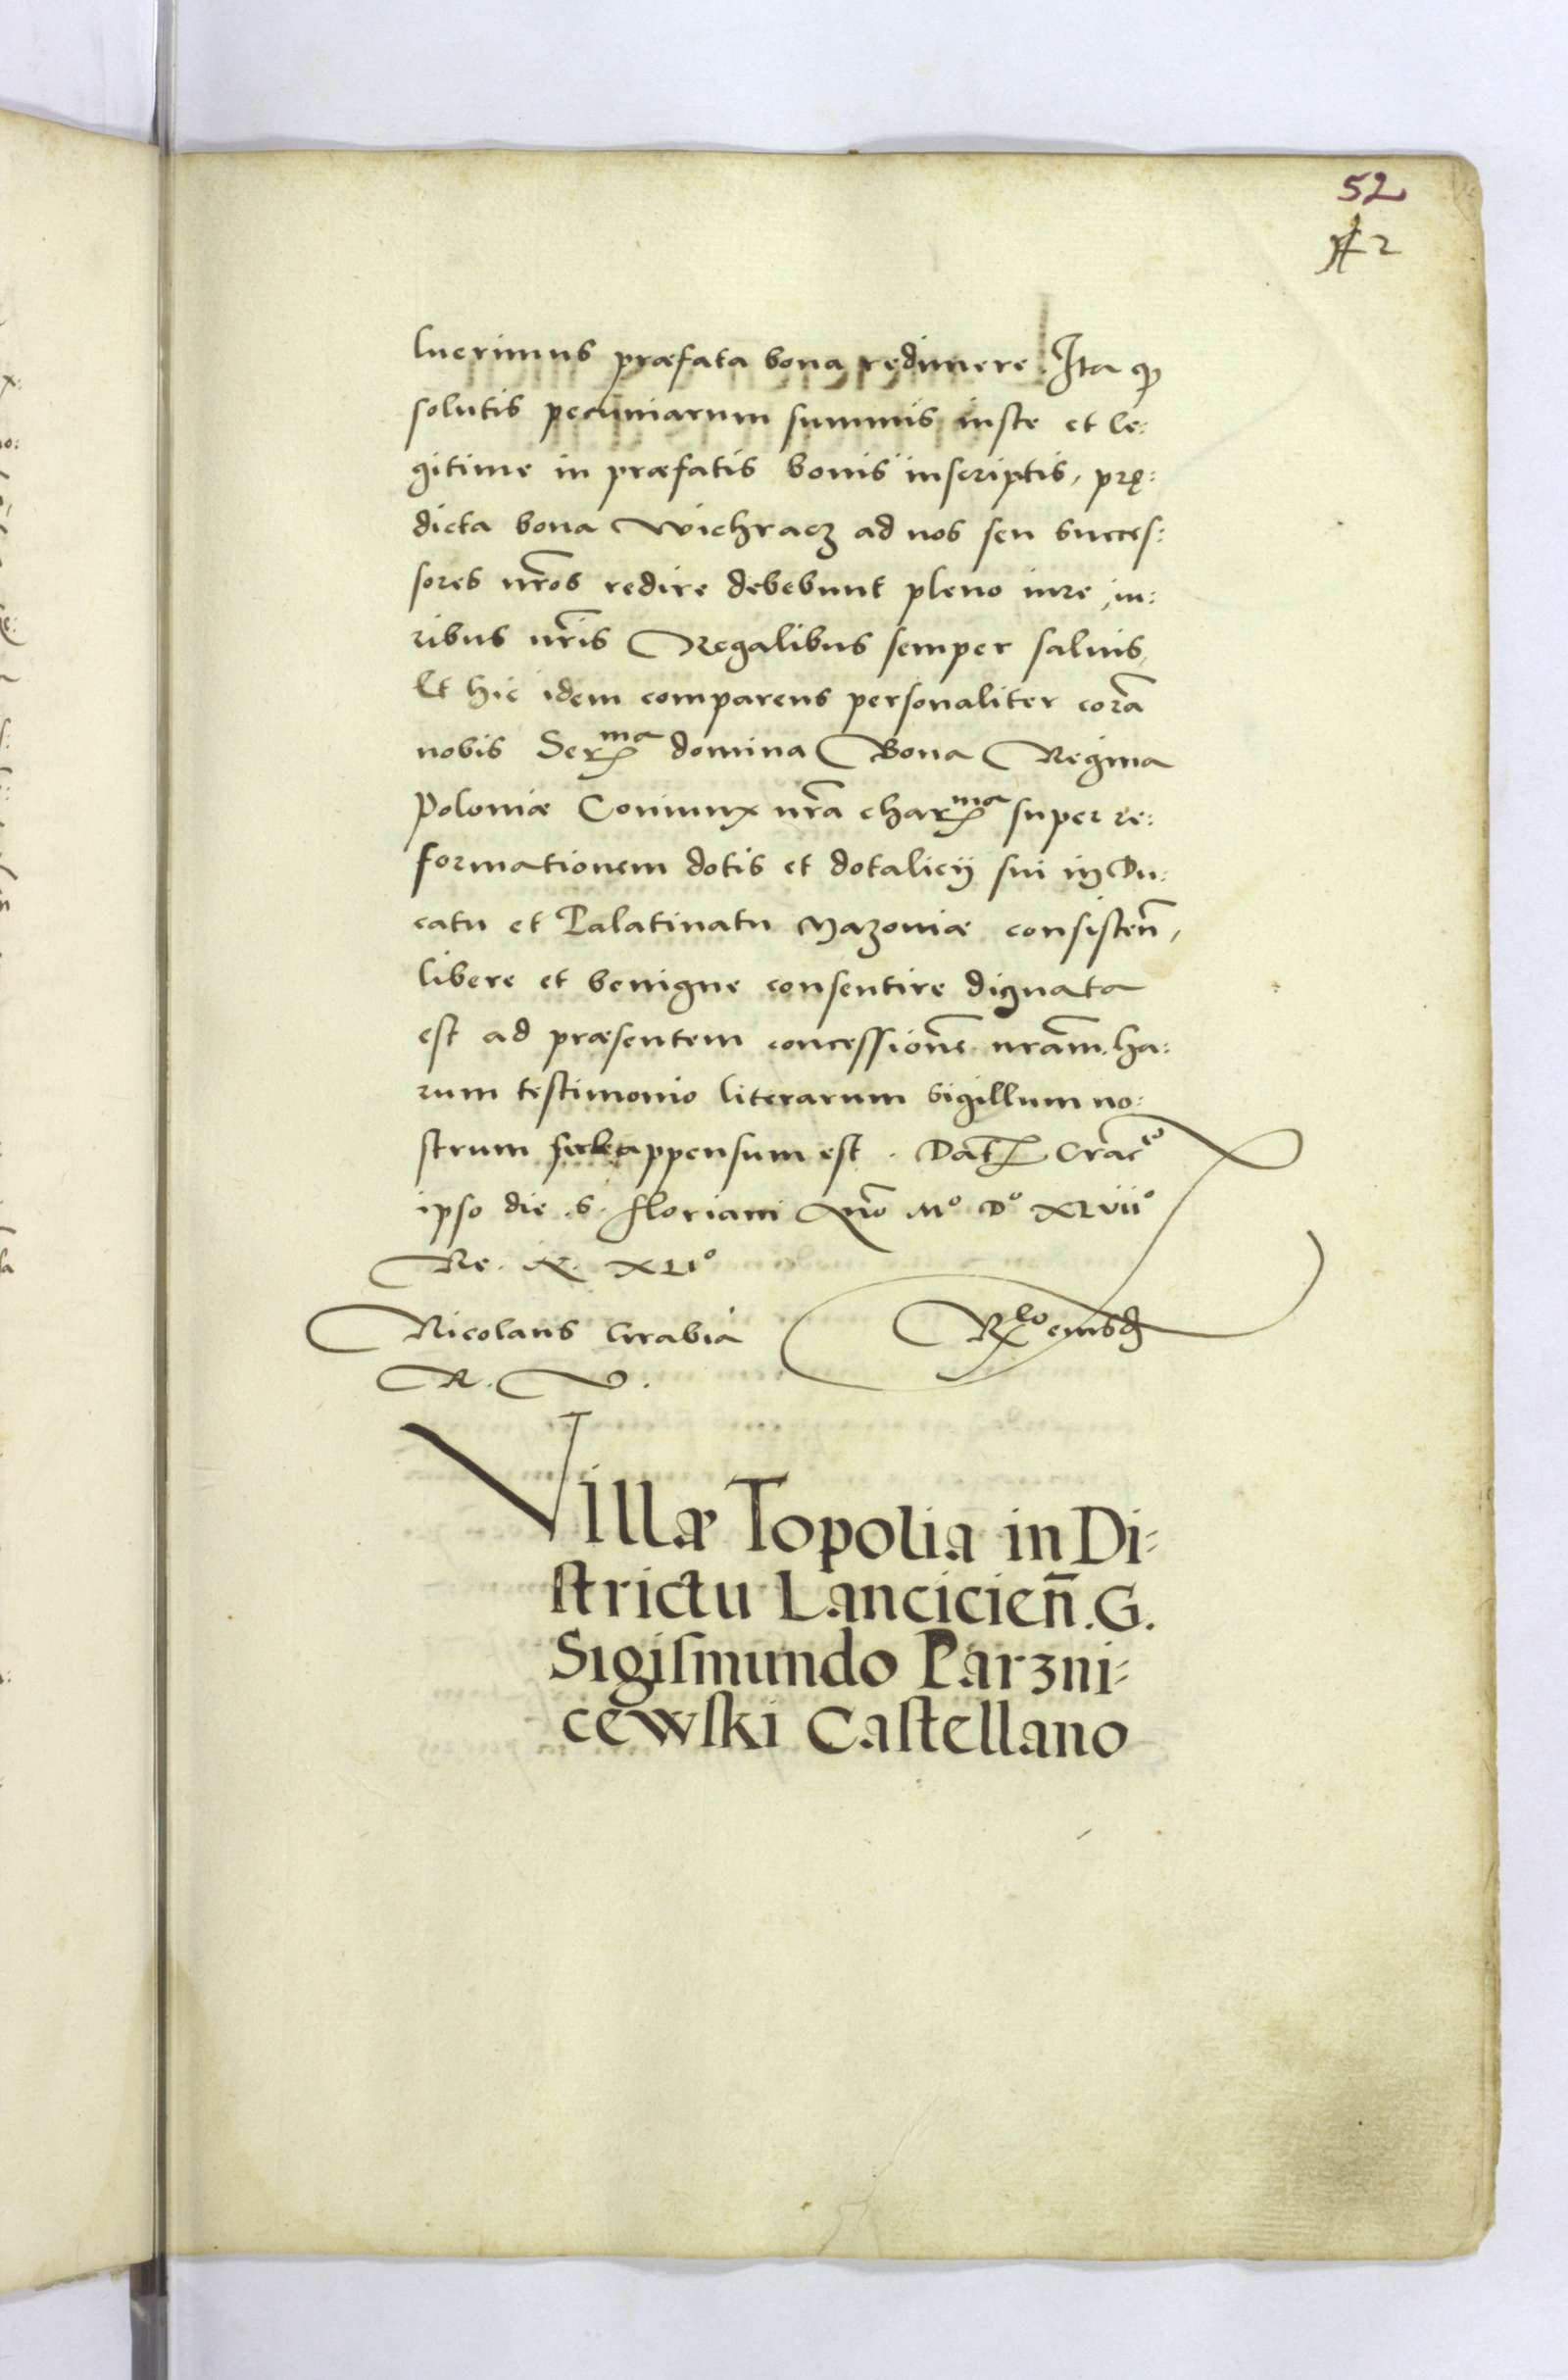 52
luerimus præfata bona redimere. Ita q̄
solutis pecuniarum summis iuste et le:
gitime in præfatis bonis inscriptis, prę:
dicta bona Wichracz ad nos seu succes:
sores nr̄os redire debebunt pleno iure, iu:
ribus nr̄is Regalibus semper saluis,
Et hic idem comparens personaliter corā
nobis Serma domina Bona Regina
Poloniæ Coniunx nr̄a charma super re:
formationem dotis et dotalicij sui in Du:
catu et Palatinatu Mazoniæ consisteñ,
libere et benigne consentire dignata
est ad præsentem concessionē nr̄am. ha:
rum testimonio literarum sigillum no:
strum appensum est. Dat Craco
ipso die S. Floriani Año Mº Dº XLVIIº
Re. R. XLIº
Nicolaus Grabia Rlo eiusd
R. V.
Villæ Topolia in Di:
strictu Lancicieñ. G.
Sigismundo Parzni:
cewski Castellano